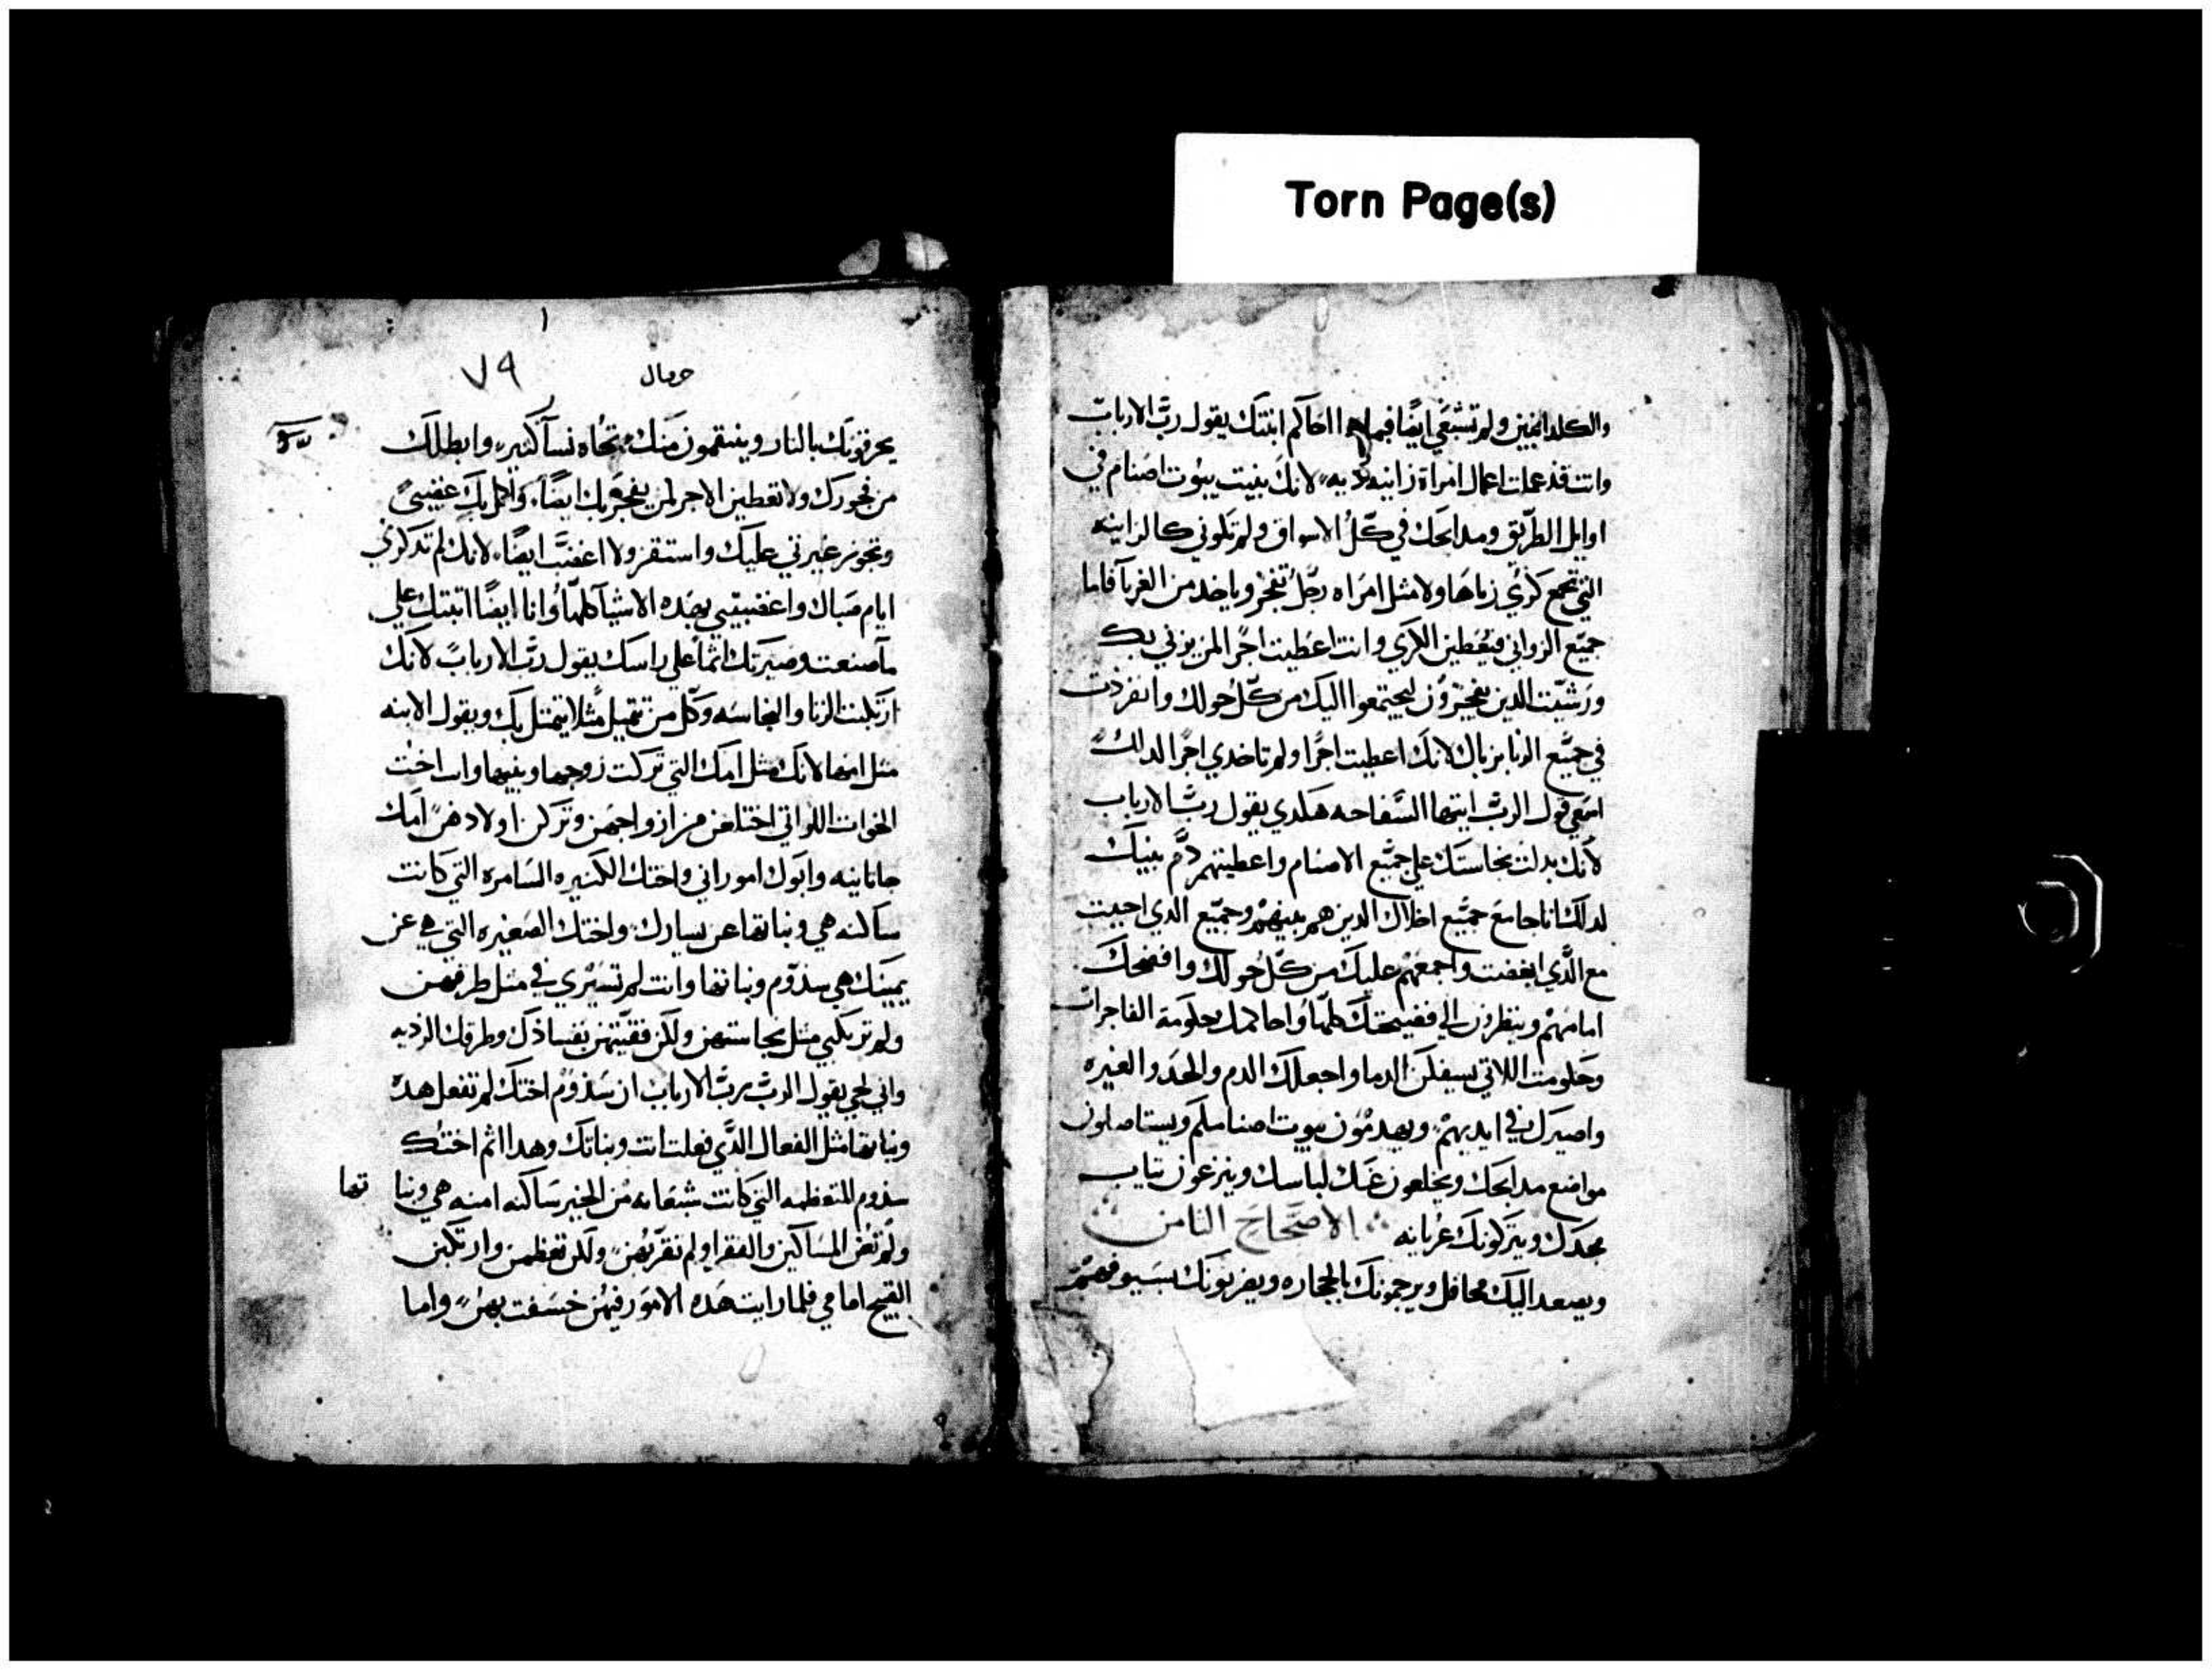 Torn Page(s)
والكلدانيين ولم تشبعي ايضا فيما هو احاكم ابنتك يقول رب الارباب
وانت قد عملت اعمال امراة زانيه لانك بنيت بيوت اصنام في
اوايل الطريق ومدابحك في كل الاسواق ولم تكوني كالزانيه
التي تجمع كري زناها ولا مثل امراه رجل تفجر وياخد من الغربا فاما
جميع الزواني فيعطين الكري وانت اعطيت اجرا لمن يزني بك
ورشيت الدين يفجرون ليجتمعوا اليك من كل حولك وانفردت
في جميع الزنا بزناك لانك اعطيت اجرا ولم تاخدي اجرا لدلك
اسمعي قول الرب ايتها السفاحه هكدي يقول رب الارباب
لانك بدلت نجاستك علي جميع الاصنام واعطيتهم دم بنيك
لدلك انا جامع جميع اخلاك الدين هم بينهم وجميع الدي احببت
مع الذي ابغضت واجمعهم عليك من كل حولك وافضحك
امامهم وينظرون الي فضيحتك كلها واحاكمك بحكومة الفاجرات
وحكومت اللاتي يسفكن الدما واجعلك الدم والحد والغيره
واصيرك في ايديهم ويهدمون بيوت اصنامكم ويستاصلون
مواضع مدابحك ويخلعون عنك لباسك وينزعون تياب
مجدك ويتركونك عريانه الاصحاح الثامن
ويصعد اليك محافل ويرجمونك بالحجاره ويضربونك بسيوفهم
٧٩
حرقيال
يحرقونك بالنار وينتقمون منك تجاه نسآ كثيره وابطلك
من فجورك ولا تعطين الاجر لمن يفجر بك ايضا واكمل بك غضبي
وتجوز غيرتي عليك واستقر ولا اغضب ايضا لانك لم تدكري
ايام صباك واغضبتيني بهده الاشيآ كلها وانا ايضا اتيتك علي
ما صنعت وصيرتك اثما علي راسك يقول رب الارباب لانك
ارتكبت الزنا والنجاسه وكل من تمثيل مثلا يتمثل بك ويقول الابنه
مثل امها لانك مثل امك التي تركت زوجها وبنيها وانت اخت
اخوات اللواتي اختلعن من ازواجهن وتركن اولادهن امك
حاتانيه وابوك اموراني واختك الكبيره السامره التي كانت
ساكنه هي وبناتها عن يسارك واختك الصغيره التي هي عن
يمينك هي سدوم وبناتها وانت لم تسيري في مثل طرقهن
ولم ترتكبي مثل نجاستهن ولكن فقتيهن بفسادك وطرقك الرديه
واني لحي يقول الرب رب الارباب ان سدوم اختك لم تفعل هده
وبناتها مثل الفعال الذي فعلت انت وبناتك وهدا اثم اختك
سدوم المتعظمه التي كانت شبعانه من الخبز ساكنه امنه هي وبنا تها
ولم تعن المساكين والفقرا ولم تقربهن ولكن تعظمن وارتكبن
القبيح امامي فلما رايت هده الامور فيهن خسفت بهن واما